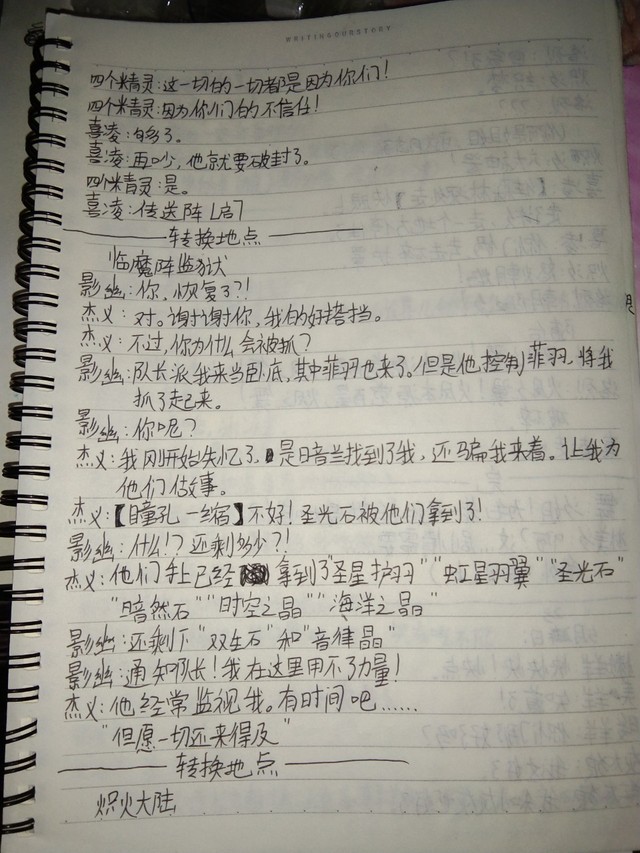 WRITINGOURSTORY
四个米精灵:这一切的一切都是因为你们!
四个米精灵:因为你们的不信任!
喜凌:够了。
喜凌:再吵,他就要破封了。
四个米精灵:是。
喜凌:传送阵启
转换地点
临魔阵监狱
影幽:你,恢复了?!
杰义:对。谢谢你,我的好搭挡。
杰义:不过,你为什么会被抓?
影幽:队长派我来当卧底,其中菲羽也来了。但是他控制菲羽,将我
抓了起来。
影幽:你呢?
杰义:我刚开始失忆了,是暗兰找到了我,还骗我来着。让我为
他们做事。
杰义:【瞳孔一缩】不好!圣光石被他们拿到了!
影幽:什么!?还剩多少?!
杰义:他们手上已经拿到了“圣星护羽”“虹星羽翼”“圣光石”
“暗然石”“时空之晶”“海洋之晶”
影幽:还剩下“双生石”和“音律晶”
影幽:通知队长!我在这里用不了力量!
杰义:他经常监视我。有时间吧……
“但愿一切还来得及”
转换地点
炽火大陆